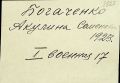 Богаченко
Акулина Семен
1923г.
I военгос 17